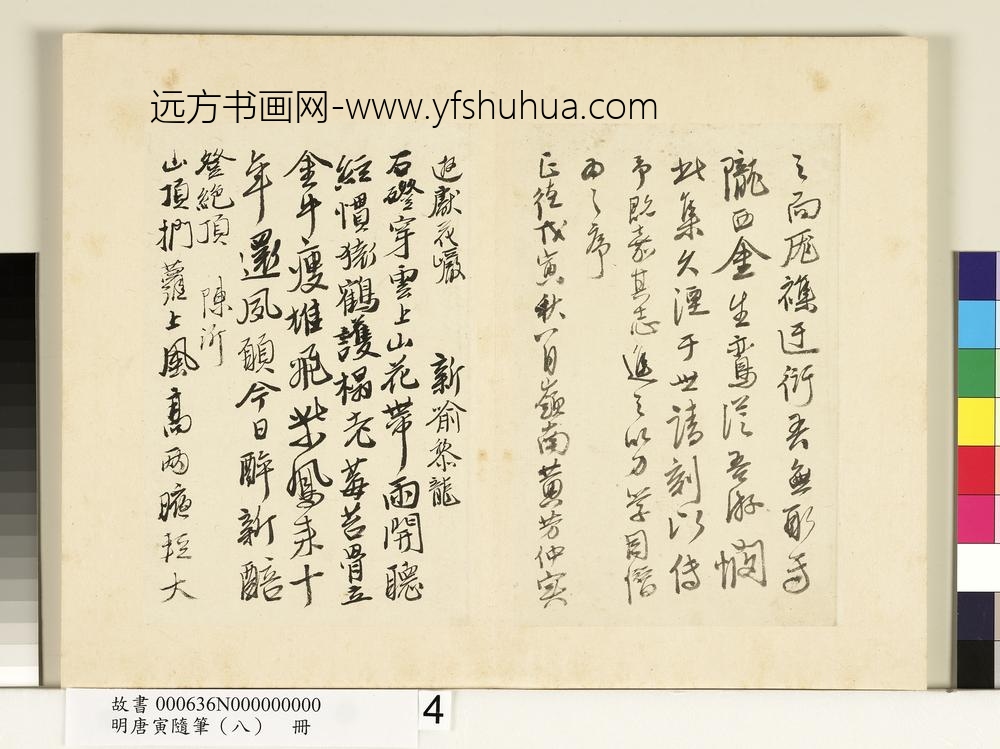 远方书画网-www.yfshuhua.com
隴西金生鸞從吾游憫
此集久湮于世請刻以傳
予既嘉其志進之以力學目僭
為之序
正德戊寅秋八月嶺南黃芳仲實
遊獻花巖 新喻黎龍
石磴穿雲上山花帶雨開聽
經慣猿鶴護榻老莓苔骨立
金牛瘦雄飛紫鳳來十
年還夙願今日醉新醅
登絕頂 陳沂
山頂捫蘿上風高兩腋輕大
故書 000636N000000000
明唐寅隨筆（八） 冊
4